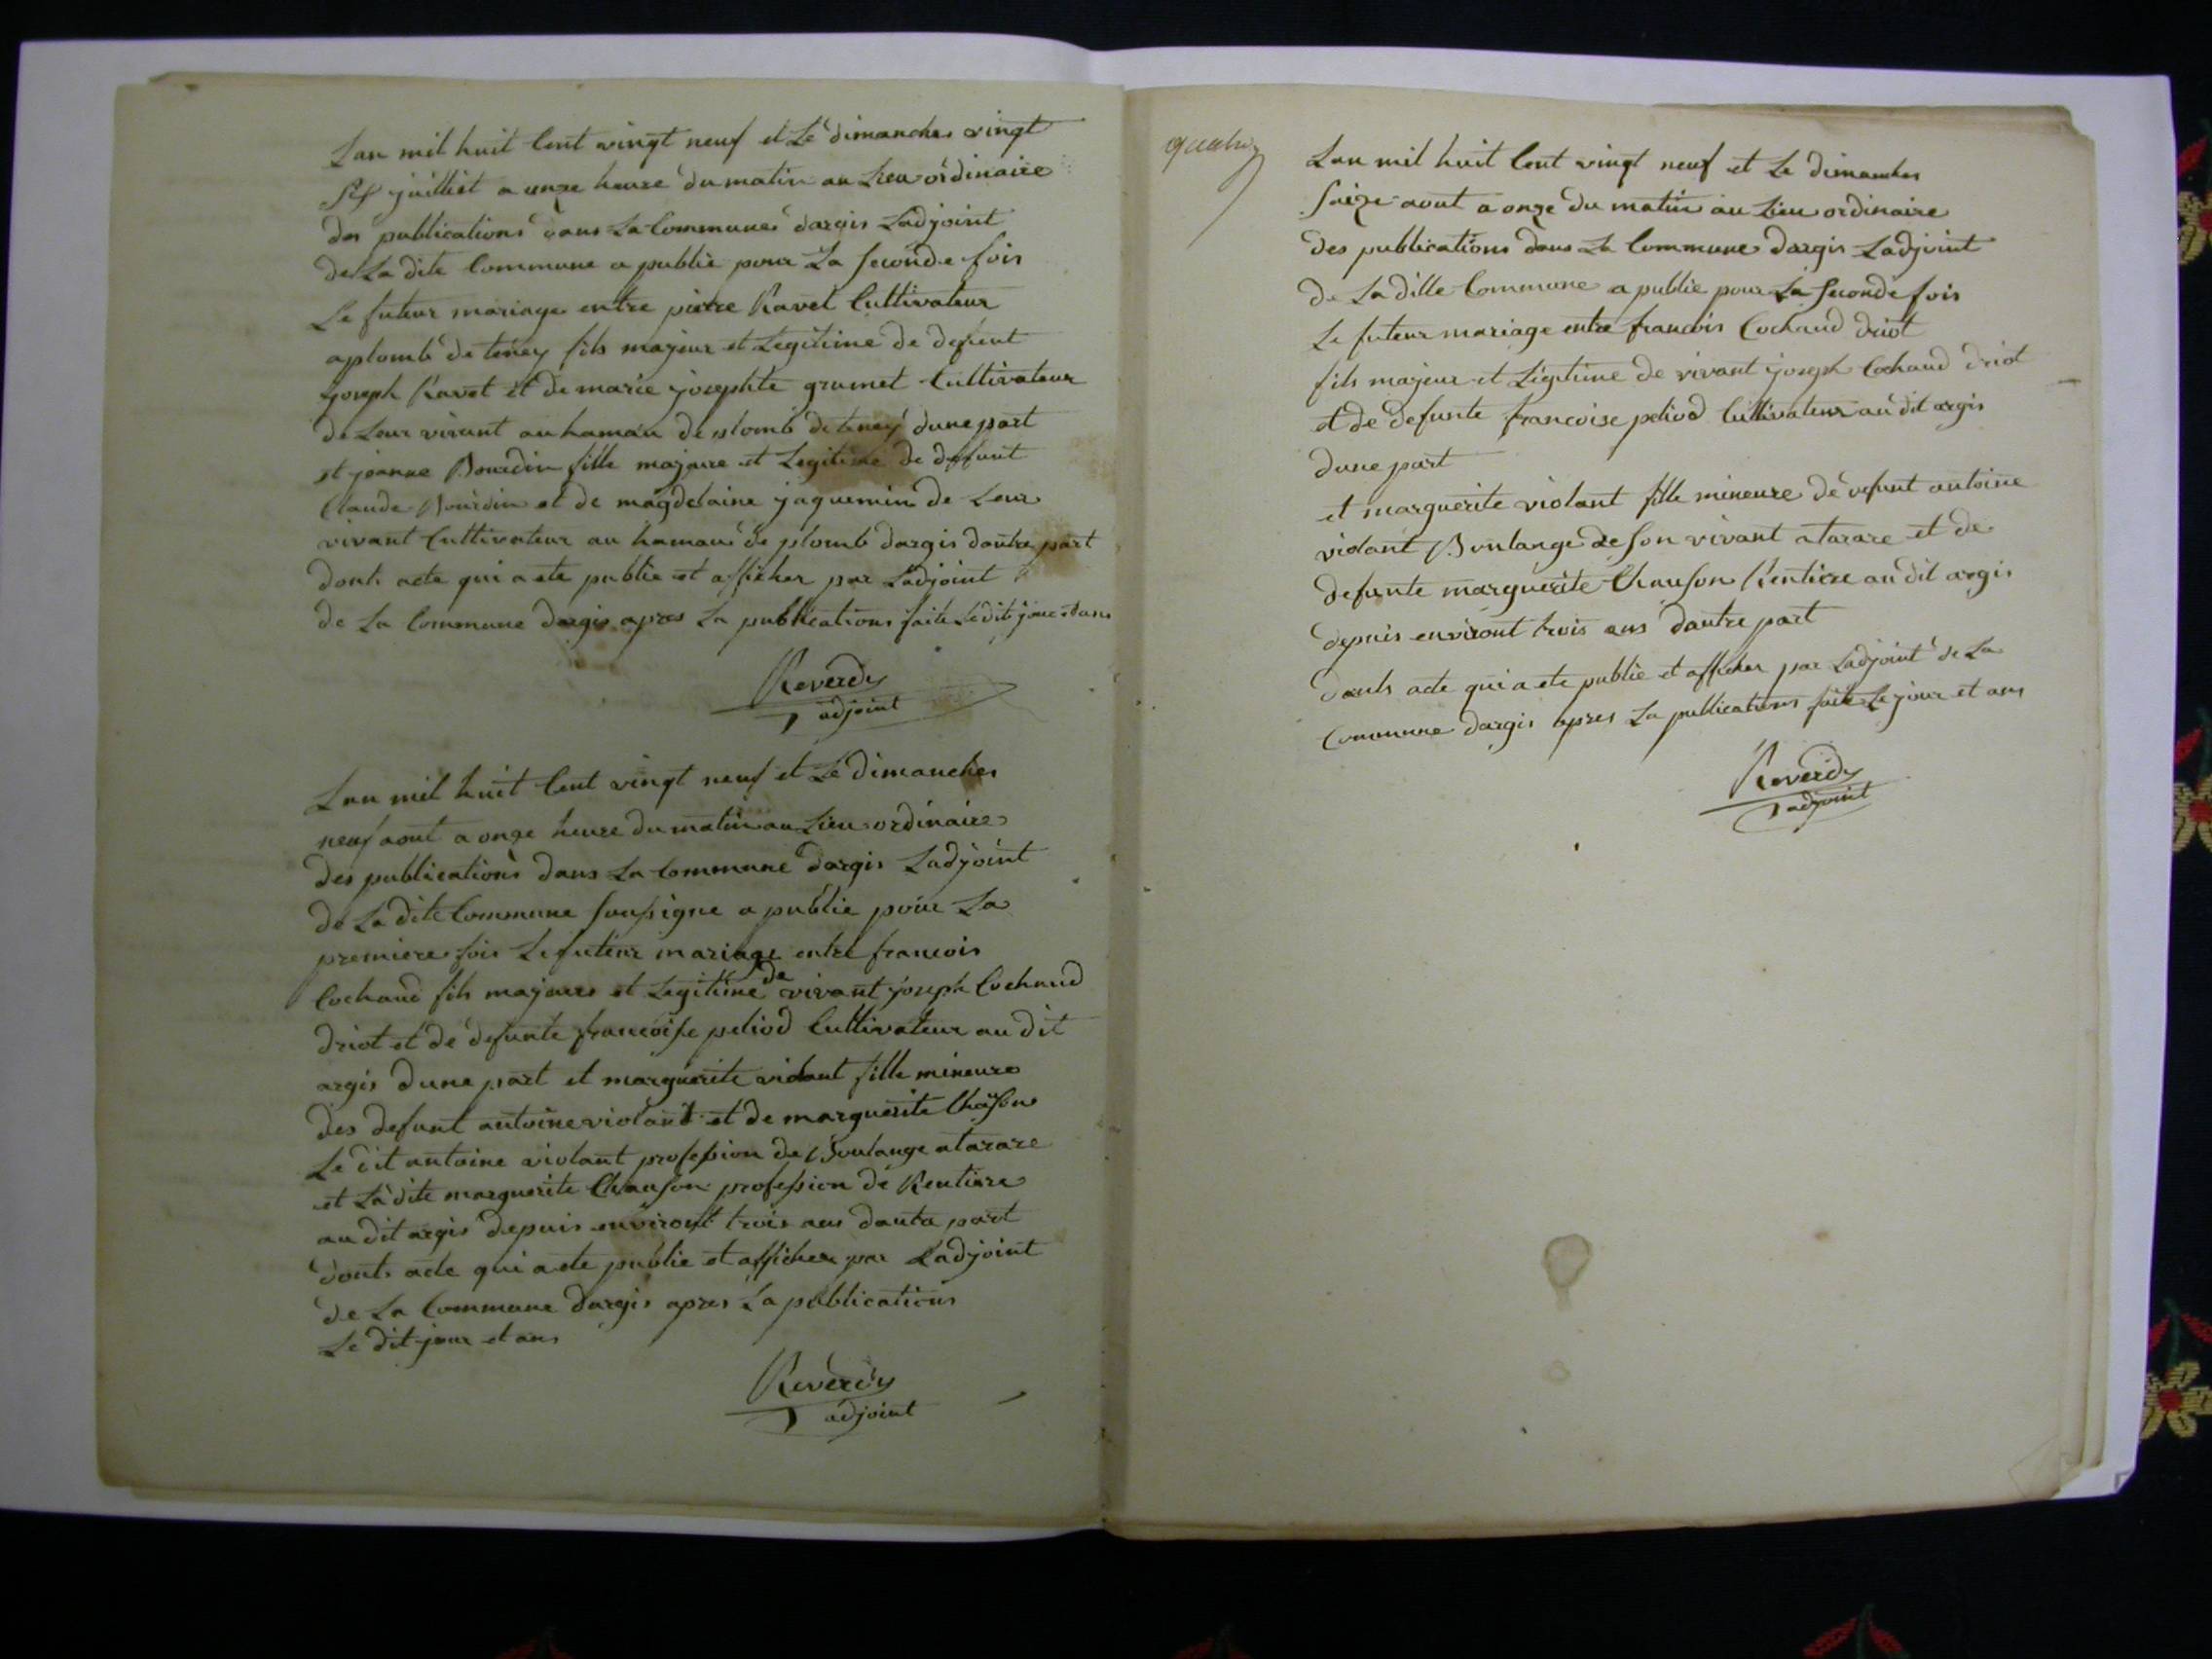 Lan mil huit Cent vingt neuf et Le dimanches vingt
six juilliet a unze heure du matin au Lieu ordinaire
des publications dans La Communes dargis Ladjoint
de La dite Commune a publie pour La seconde fois
Le futeur mariage entre pierre Ravet Cultivateur
aplomb de teney fils majeur et Legitime de defeunt
joseph Ravet et de marie josephte grumet Cultivateur
de Leur vivant au hamau de plomb de teney dune part
et jeanne Bourdin fille majeure et Legitime de deffunt
Claude Bourdin et de magdelaine jaquemin de Leur
vivant Cultivateur au hamau de plomb dargis dautre part
dont acte qui a ete publie et afficher par Ladjoint
de La Commune dargis apres La publications faite Ledit jour et ans
Reverdy
adjoint
Lan mil huit Cent vingt neuf et Le dimanches
neuf aout a onze heure du matin au Lieu ordinaire
des publications dans La commune dargis Ladjoint
de La dite Commune soussigne a publie pour La
premiere fois Le futeur mariage entre francois
Cochaud fils majeure et Legitime de vivant joseph Cochaud
driot et de defunte francoise peliod Cultivateur au dit
argis dune part et marguerite violant fille mineure
des defunt antoine violant et de marguerite Chauson
Le dit antoine violant profession de Boulange atarare
et La dite marguerite Chauson profession de Rentiere
au dit argis depuis environt trois ans dauta part
dont acte qui a ete publie et afficher par Ladjoint
de La Commune dargis apres La publications
Le dit jour et ans
Reverdy
adjoint
quatre
Lan mil huit Cent vingt neuf et Le dimanches
saize aout a onze du matin au Lieu ordinaire
des publications dans La Commune dargis Ladjoint
de La ditte Commune a publie pour La seconde fois
Le futeur mariage entre francois Cochaud driot
fils majeur et Legitime de vivant joseph Cochaud driot
et de defunte francoise peliod Cultivateur au dit argis
dune part
et marguerite violant fille mineure de defunt antoine
violant Boulange de son vivant atarare et de
defunte marguerite Chauson Rentiere au dit argis
depuis environt trois ans dautre part
dont acte qui a ete publie et afficher par Ladjoint de La
Commune dargis apres La publications faite Le jour et ans
Reverdy
adjoint